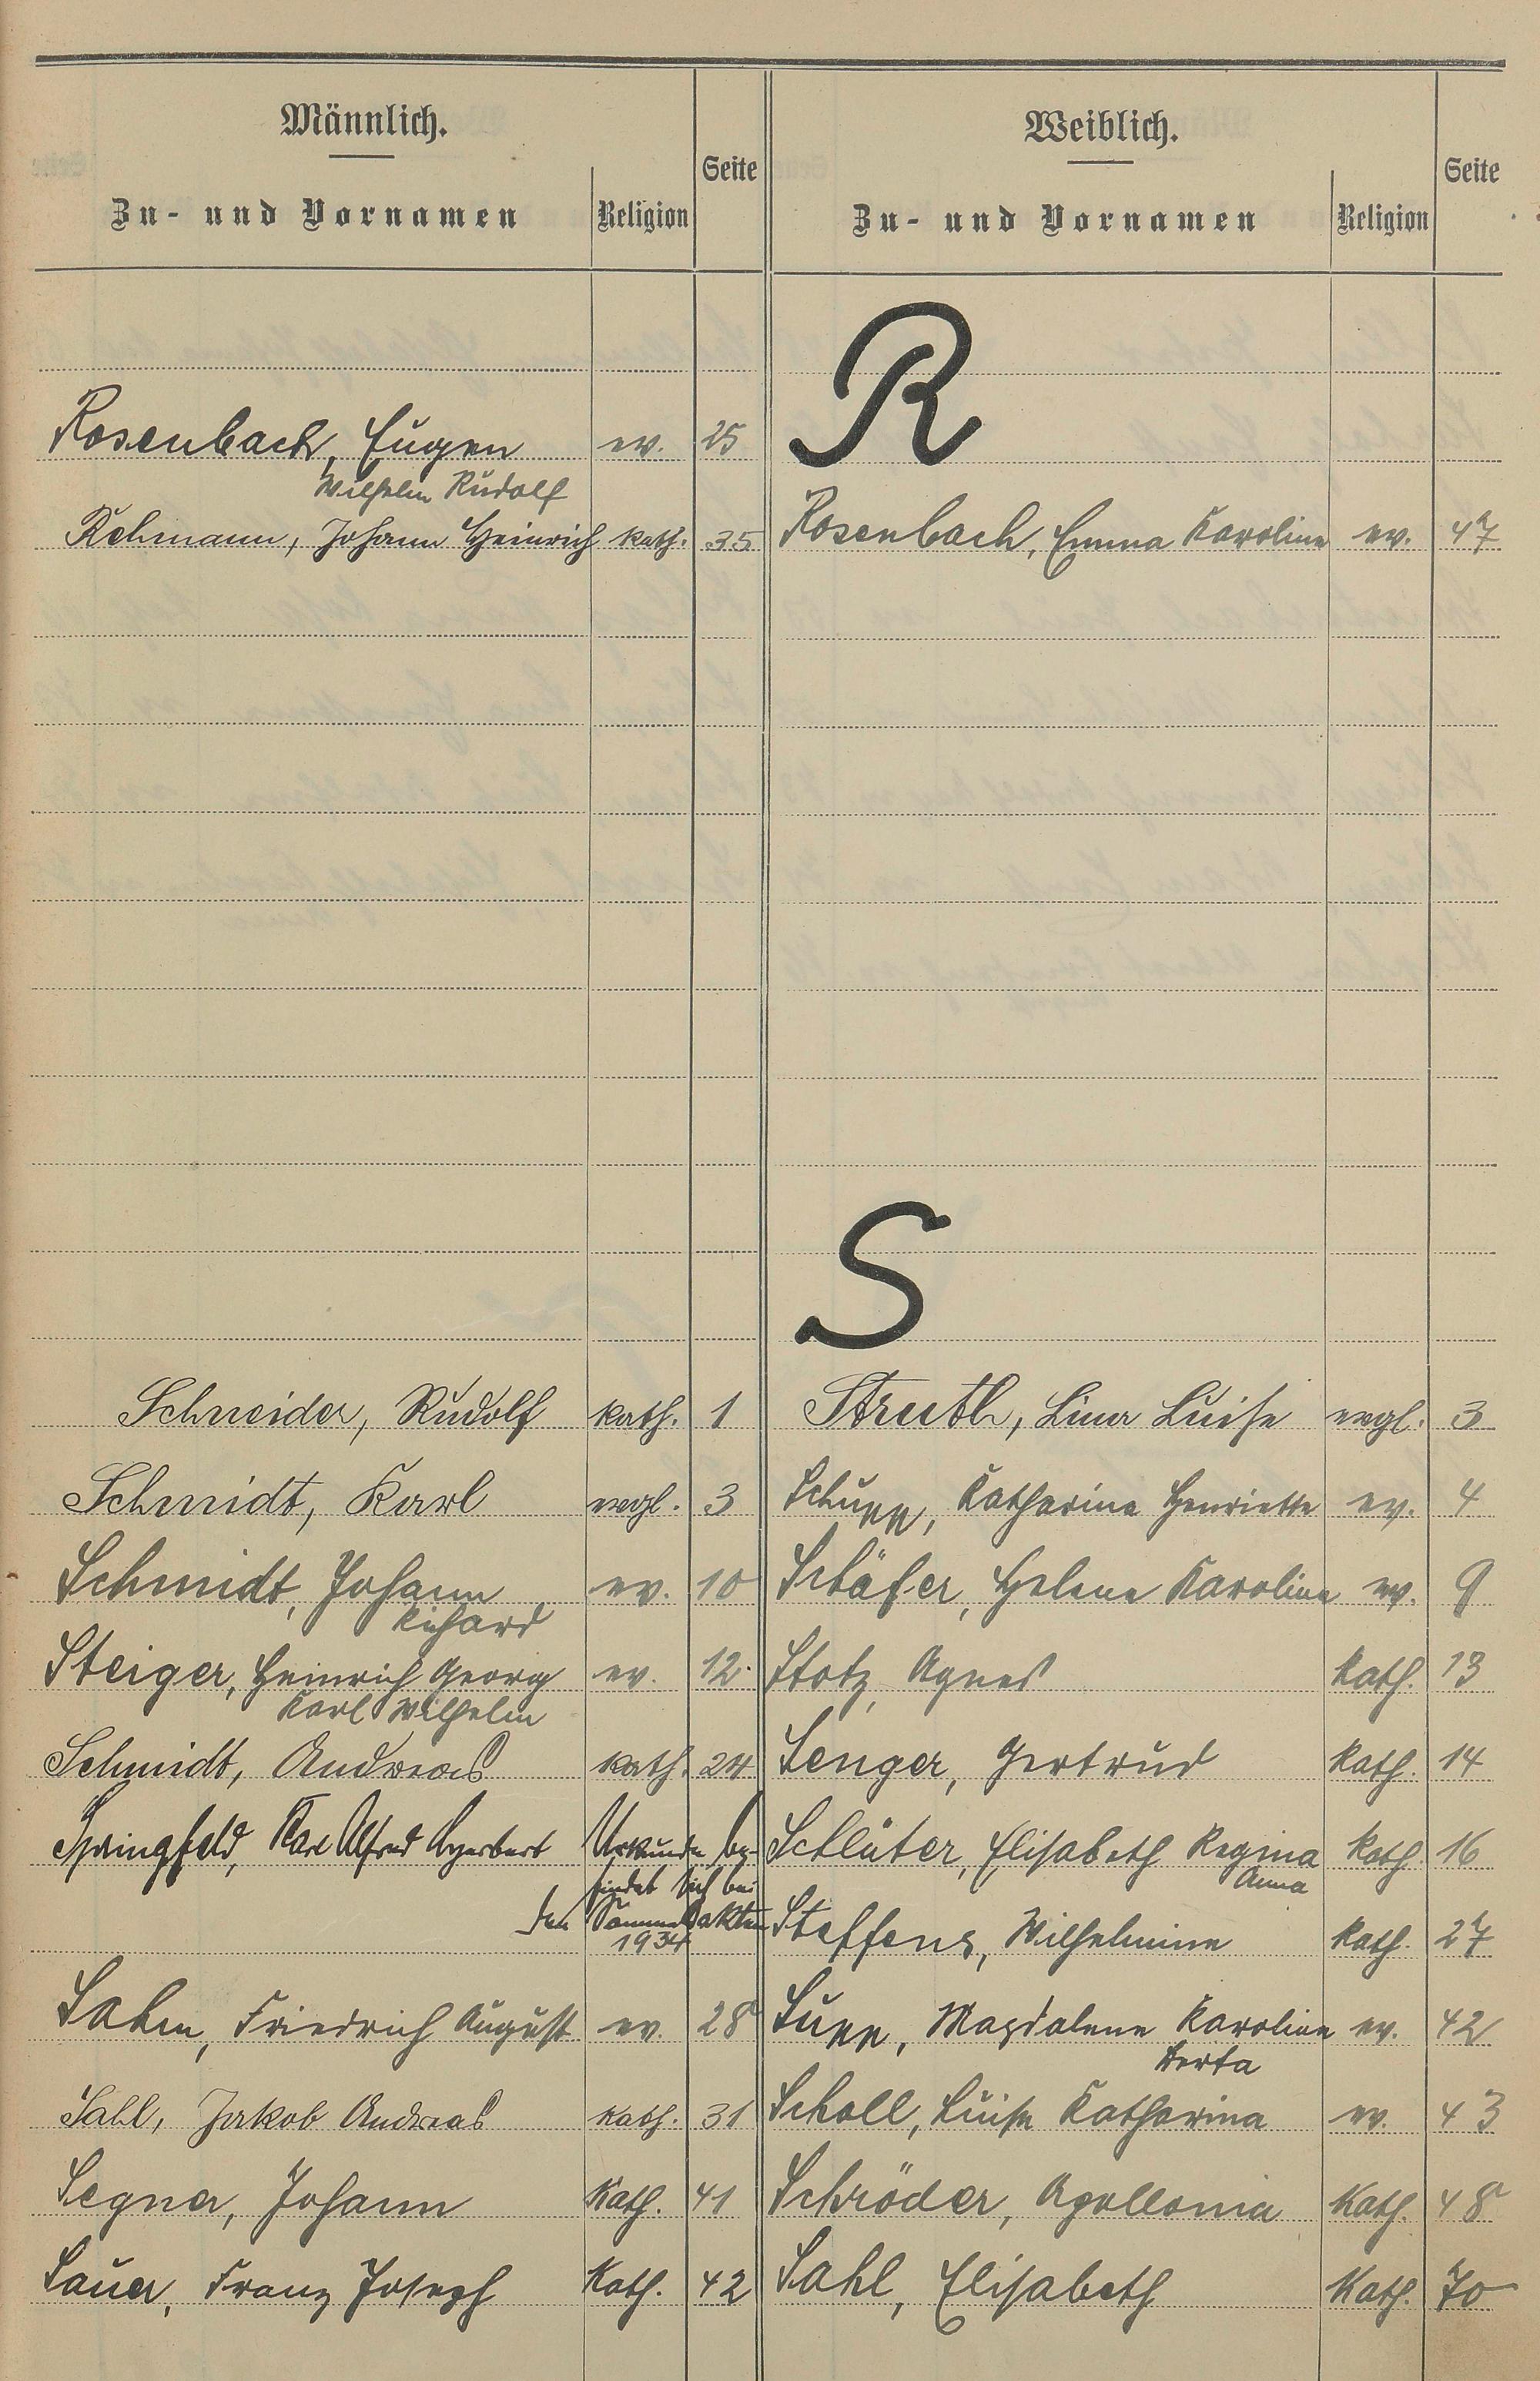 Männlich.
Zu- und Vornamen
Religion
Seite
Weiblich.
Zu- und Vornamen
Religion
Seite
R
Rosenbach, Eugen ev. 25
Wilhelm Rudolf
Rehmann, Johann Heinrich kath. 35
Rosenbach, Emma Karoline ev. 47
S
Schneider, Rudolf kath. 1
Struth, Lina Luise evgl. 3
Schmidt, Karl evgl. 3
Schupp, Katharina Henriette ev. 4
Schmidt, Johann ev. 10
Richard
Schäfer, Helene Karoline ev. 9
Steiger, Heinrich Georg ev. 12
Karl Wilhelm
Stotz, Agnes kath. 13
Schmidt, Andreas kath. 24
Senger, Gertrud kath. 14
Springfeld, Karl Alfred Herbert Urkunde be-
findet sich bei
den Sammelakten
1934
Schlüter, Elisabeth Regina kath. 16
Anna
Steffens, Wilhelmine kath. 27
Sahm, Friedrich August ev. 28
Supp, Magdalene Karoline ev. 42
Berta
Sahl, Jakob Andreas kath. 31
Scholl, Luise Katharina ev. 43
Segner, Johann Kath. 41
Schröder, Apollonia Kath. 48
Sauer, Franz Joseph Kath. 42
Sahl, Elisabeth Kath. 70